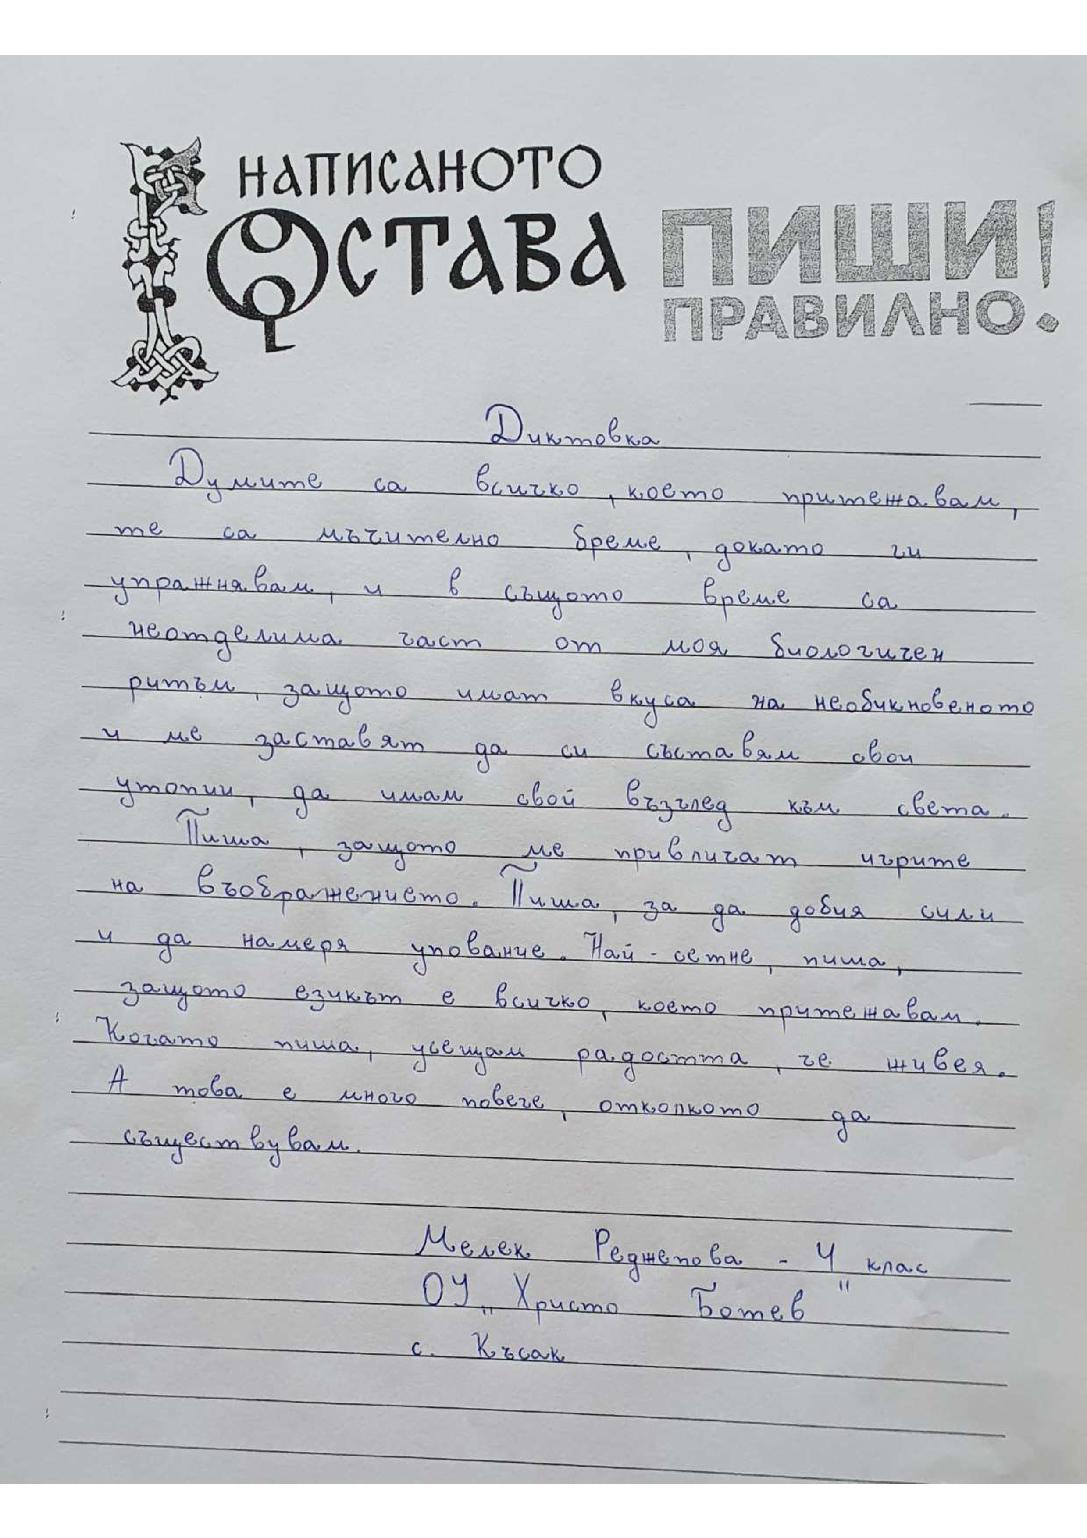 НАПИСАНОТО
ОСТАВА
ПИШИ!
ПРАВИЛНО!
Диктовка
Думите са всичко, което притежавам,
те са мъчително бреме, докато ги
упражнявам, и в същото време са
неотделима част от моя биологичен
ритъм, защото имат вкуса на необикновеното
и ме заставят да си съставям свои
утопии, да имам свой възглед към света.
Пиша, защото ме привличат игрите
на въображението. Пиша, за да добия сили
и да намеря упование. Най-сетне, пиша,
защото езикът е всичко, което притежавам.
Когато пиша, усещам радостта, че живея.
А това е много повече, отколкото да
съществувам.
Мелек Реджепова - 4 клас
ОУ „Христо Ботев"
с. Късак